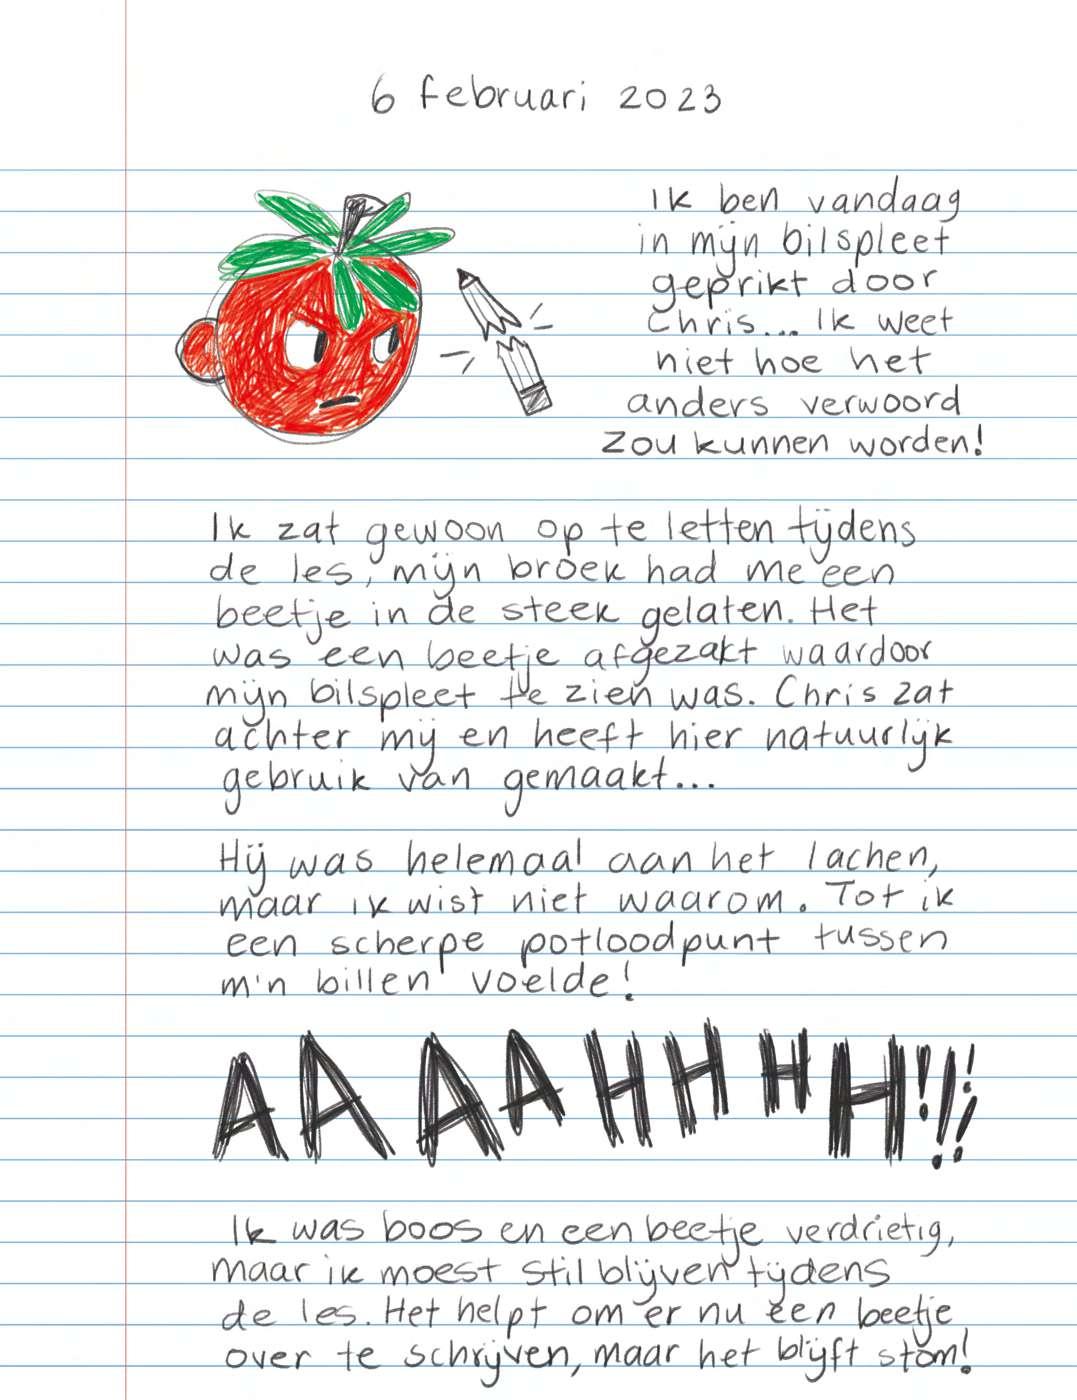 6 februari 2023
Ik ben vandaag
in mijn bilspleet
geprikt door
Chris... Ik weet
niet hoe het
anders verwoord
zou kunnen worden!
Ik zat gewoon op te letten tijdens
de les, mijn broek had me een
beetje in de steek gelaten. Het
was een beetje afgezakt waardoor
mijn bilspleet te zien was. Chris zat
achter mij en heeft hier natuurlijk
gebruik van gemaakt...
Hij was helemaal aan het lachen,
maar ik wist niet waarom. Tot ik
een scherpe potloodpunt tussen
m'n billen voelde!
AAAAHHHH!!!
Ik was boos en een beetje verdrietig,
maar ik moest stil blijven tijdens
de les. Het helpt om er nu een beetje
over te schrijven, maar het blijft stom!